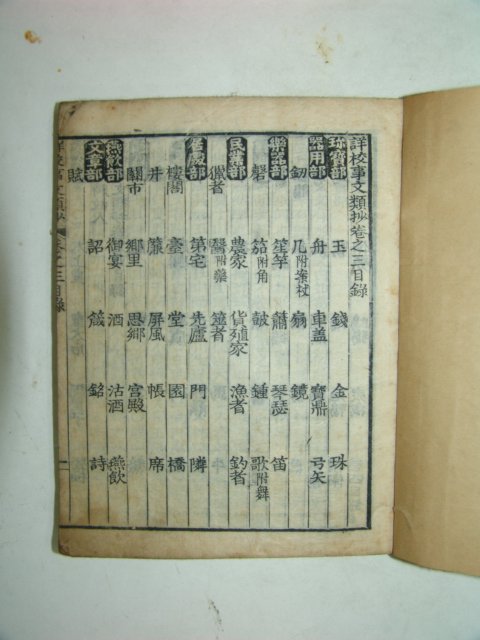 詳校事文類抄卷之三目錄
珎寶部 玉 錢 金 珠
器用部 舟 車盖 寶鼎 弓矢
劒 几附案杖 扇 鏡
樂器部 笙竽 簫 琴瑟 笛
磬 笳附角 皷 鍾 歌附舞
民業部 農家 貨殖家 漁者 釣者
獵者 醫附藥 筮者
居處部 第宅 先廬 門 隣
樓閣 臺 堂 園 橋
井 簾 屏風 帳 席
市 鄉里 思鄉 宮殿
燕飮部 御宴 酒 沽酒 燕飮
文章部 詔 箴 銘 詩
賦
詳校事文類抄 卷之三目錄 一